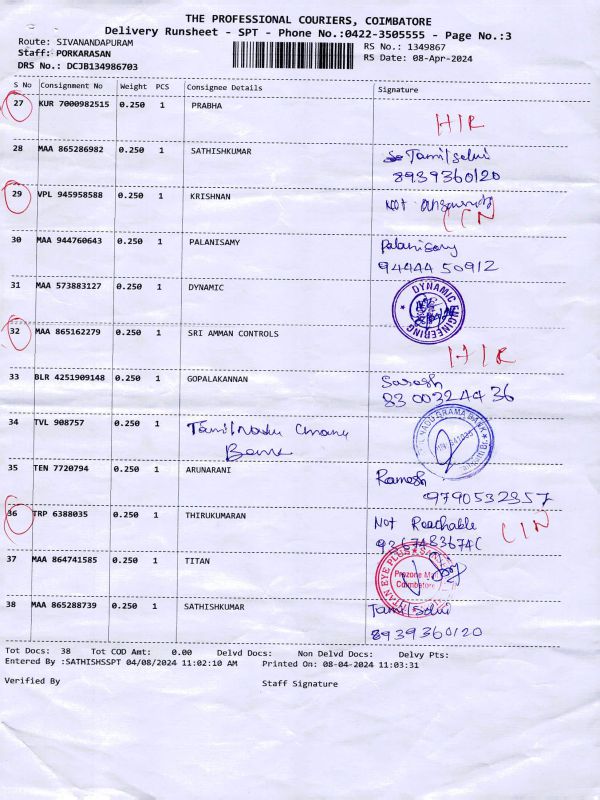 THE PROFESSIONAL COURIERS, COIMBATORE
Delivery Runsheet - SPT - Phone No.:0422-3505555 - Page No.:3
Route: SIVANANDAPURAM RS No.: 1349867
Staff: PORKARASAN RS Date: 08-Apr-2024
DRS No.: DCJB134986703
S No Consignment No Weight PCS Consignee Details Signature
27 KUR 7000982515 0.250 1 PRABHA
28 MAA 865286982 0.250 1 SATHISHKUMAR Tamil selvi
8939360120
29 VPL 945958588 0.250 1 KRISHNAN Not
30 MAA 944760643 0.250 1 PALANISAMY Palanisamy
94444 50912
31 MAA 573883127 0.250 1 DYNAMIC DYNAMIC ENGINEERING
32 MAA 865162279 0.250 1 SRI AMMAN CONTROLS
33 BLR 4251909148 0.250 1 GOPALAKANNAN
83 00322436
34 TVL 908757 0.250 1 Tamil Nadu
35 TEN 7720794 0.250 1 ARUNARANI Ramesh
9790532357
36 TRP 6388035 0.250 1 THIRUKUMARAN Not Reachable
37 MAA 864741585 0.250 1 TITAN TITAN EYE PLUS Prozone Coimbatore
38 MAA 865288739 0.250 1 SATHISHKUMAR Tamil selvi
8939360120
Tot Docs: 38 Tot COD Amt: 0.00 Delvd Docs: Non Delvd Docs: Delvy Pts:
Entered By :SATHISHSSPT 04/08/2024 11:02:10 AM Printed On: 08-04-2024 11:03:31
Verified By Staff Signature